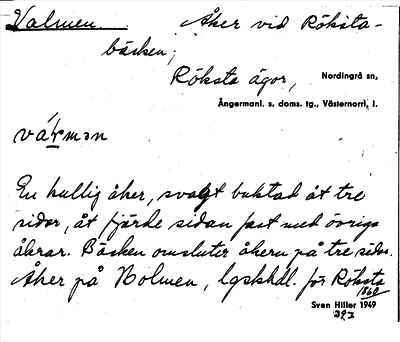 Valmen. Åker vid Röksta-
bäcken;
Röksta ägor, Nordingrå sn,
Ångermanl. s. doms. tg., Västernorrl. l.
En kullig åker, svagt buktad åt tre
sidor, åt fjärde sidan fast med övriga
åkrar. Bäcken omsluter åkern på tre sidor.
Åker på Bolmen, lgskhdl. för Röksta
1860
Sven Hiller 1949
293